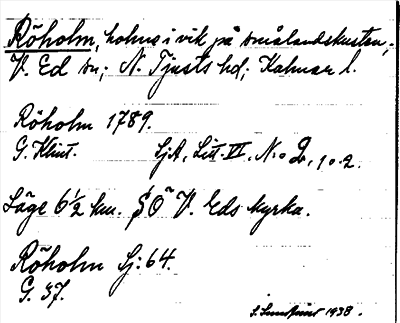 Röholm, holme i vik på smålandskusten;
V. Ed sn; N. Tjusts hd; Kalmar l.
Röholm 1789.
G. Klint. SjA, Litt. VI, No 2, 1 o. 2.
Läge 6½ km. SO V. Eds kyrka.
Röholm Sj: 64.
G. 37.
1938.